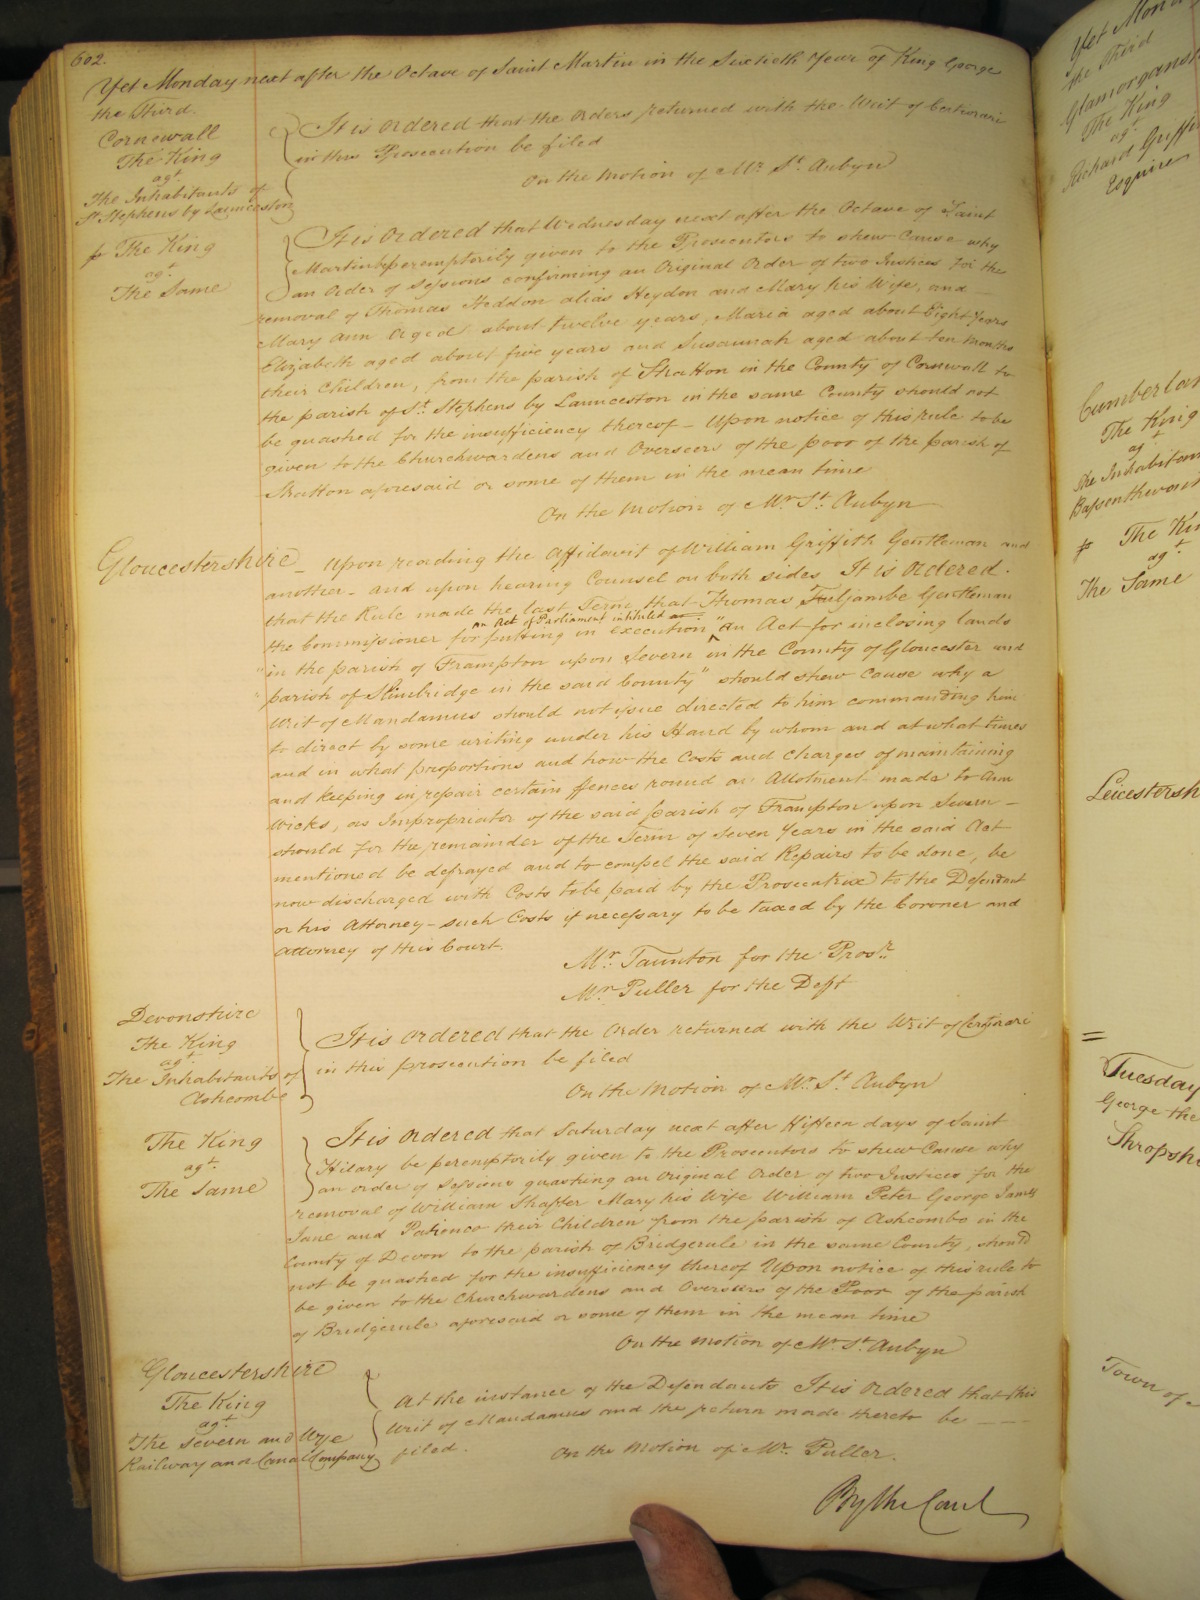 602.
Yet Monday next after the Octave of Saint Martin in the Sixtieth Year of King George
the Third.
Cornwall
The King
agt.
The Inhabitants of
St Stephens by Launceston
It is ordered that the Orders returned with the Writ of Certiorari
in this Prosecution be filed
On the Motion of Mr. St. Aubyn
The King
agt.
The Same
It is ordered that Wednesday next after the Octave of Saint
Martin be peremptorily given to the Prosecutors to shew Cause why
an Order of Sessions confirming an Original Order of two Justices for the
removal of Thomas Heddon alias Heydon and Mary his Wife, and
Mary Ann Aged about twelve years, Maria aged about Eight Years
Elizabeth aged about five years and Susannah aged about ten months
their Children, from the parish of Stratton in the County of Cornwall to
the parish of St. Stephens by Launceston in the same County should not
be quashed for the insufficiency thereof - Upon notice of this rule to be
given to the Churchwardens and Overseers of the poor of the parish of
Stratton aforesaid or some of them in the mean time
On the Motion of Mr. St. Aubyn
Gloucestershire - Upon reading the Affidavit of William Griffith Gentleman and
another - and upon hearing Counsel on both sides It is Ordered
that the Rule made the last Term that Thomas Fuljambe Gentleman
an Act of Parliament intitled
the Commissioner for putting in execution "An Act for inclosing lands
"in the parish of Frampton upon Severn in the County of Gloucester and
"parish of Slimbridge in the said County" should shew cause why a
Writ of Mandamus should not issue directed to him commanding him
to direct by some writing under his Hand by whom and at what times
and in what proportions and how the Costs and Charges of maintaining
and keeping in repair certain ffences round an Allotment made to Ann
Wicks, as Impropriator of the said parish of Frampton upon Severn -
should for the remainder of the Term of Seven Years in the said Act
mentioned be defrayed and to compel the said Repairs to be done, be
now discharged with Costs to be paid by the Prosecutrix to the Defendant
or his Attorney - such Costs if necessary to be taxed by the Coroner and
Attorney of this Court.
Mr. Taunton for the Prosr.
Mr. Puller for the Deft
Devonshire
The King
agt.
The Inhabitants of
Ashcombe
It is ordered that the Order returned with the Writ of Certiorari
in this prosecution be filed
On the Motion of Mr. St. Aubyn
The King
agt.
The Same
It is ordered that Saturday next after Fifteen days of Saint
Hilary be peremptorily given to the Prosecutors to shew Cause why
an order of Sessions quashing an Original Order of two Justices for the
removal of William Shapter Mary his Wife William Peter George James
Jane and Patience their Children from the parish of Ashcombe in the
County of Devon to the parish of Bridgerule in the same County, should
not be quashed for the insufficiency thereof Upon notice of this rule to
be given to the Churchwardens and Overseers of the Poor of the parish
of Bridgerule aforesaid or some of them in the mean time
On the Motion of Mr. St. Aubyn
Gloucestershire
The King
agt.
The Severn and Wye
Railway and Canal Company
At the instance of the Defendants It is Ordered that this
Writ of Mandamus and the return made thereto be
filed.
On the Motion of Mr. Puller.
By the Court
Yet Mon
the Third
Glamorgansh
The King
agt.
Richard Griff
Esquire
Cumberlan
The King
agt.
The Inhabitan
Bassenthwait
The Kin
agt.
The Same
Leicestersh
Tuesday
George the
Shropshi
Town of